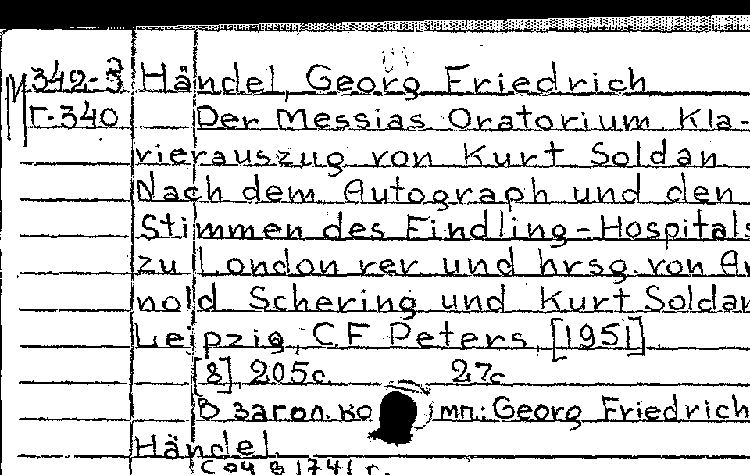 M 342-3 Händel, Georg Friedrich
Г-340 Der Messias Oratorium Kla-
vierauszug von Kurt Soldan
Nach dem Autograph und den
Stimmen des Findling-Hospitals
zu London rev und hrsg. von Ar
nold Schering und Kurt Soldan
Leipzig, C F Peters, [1951]
[8], 205с. 27с
В загол. ко имп: Georg Friedrich
Händel.
Соч в 1741 г.